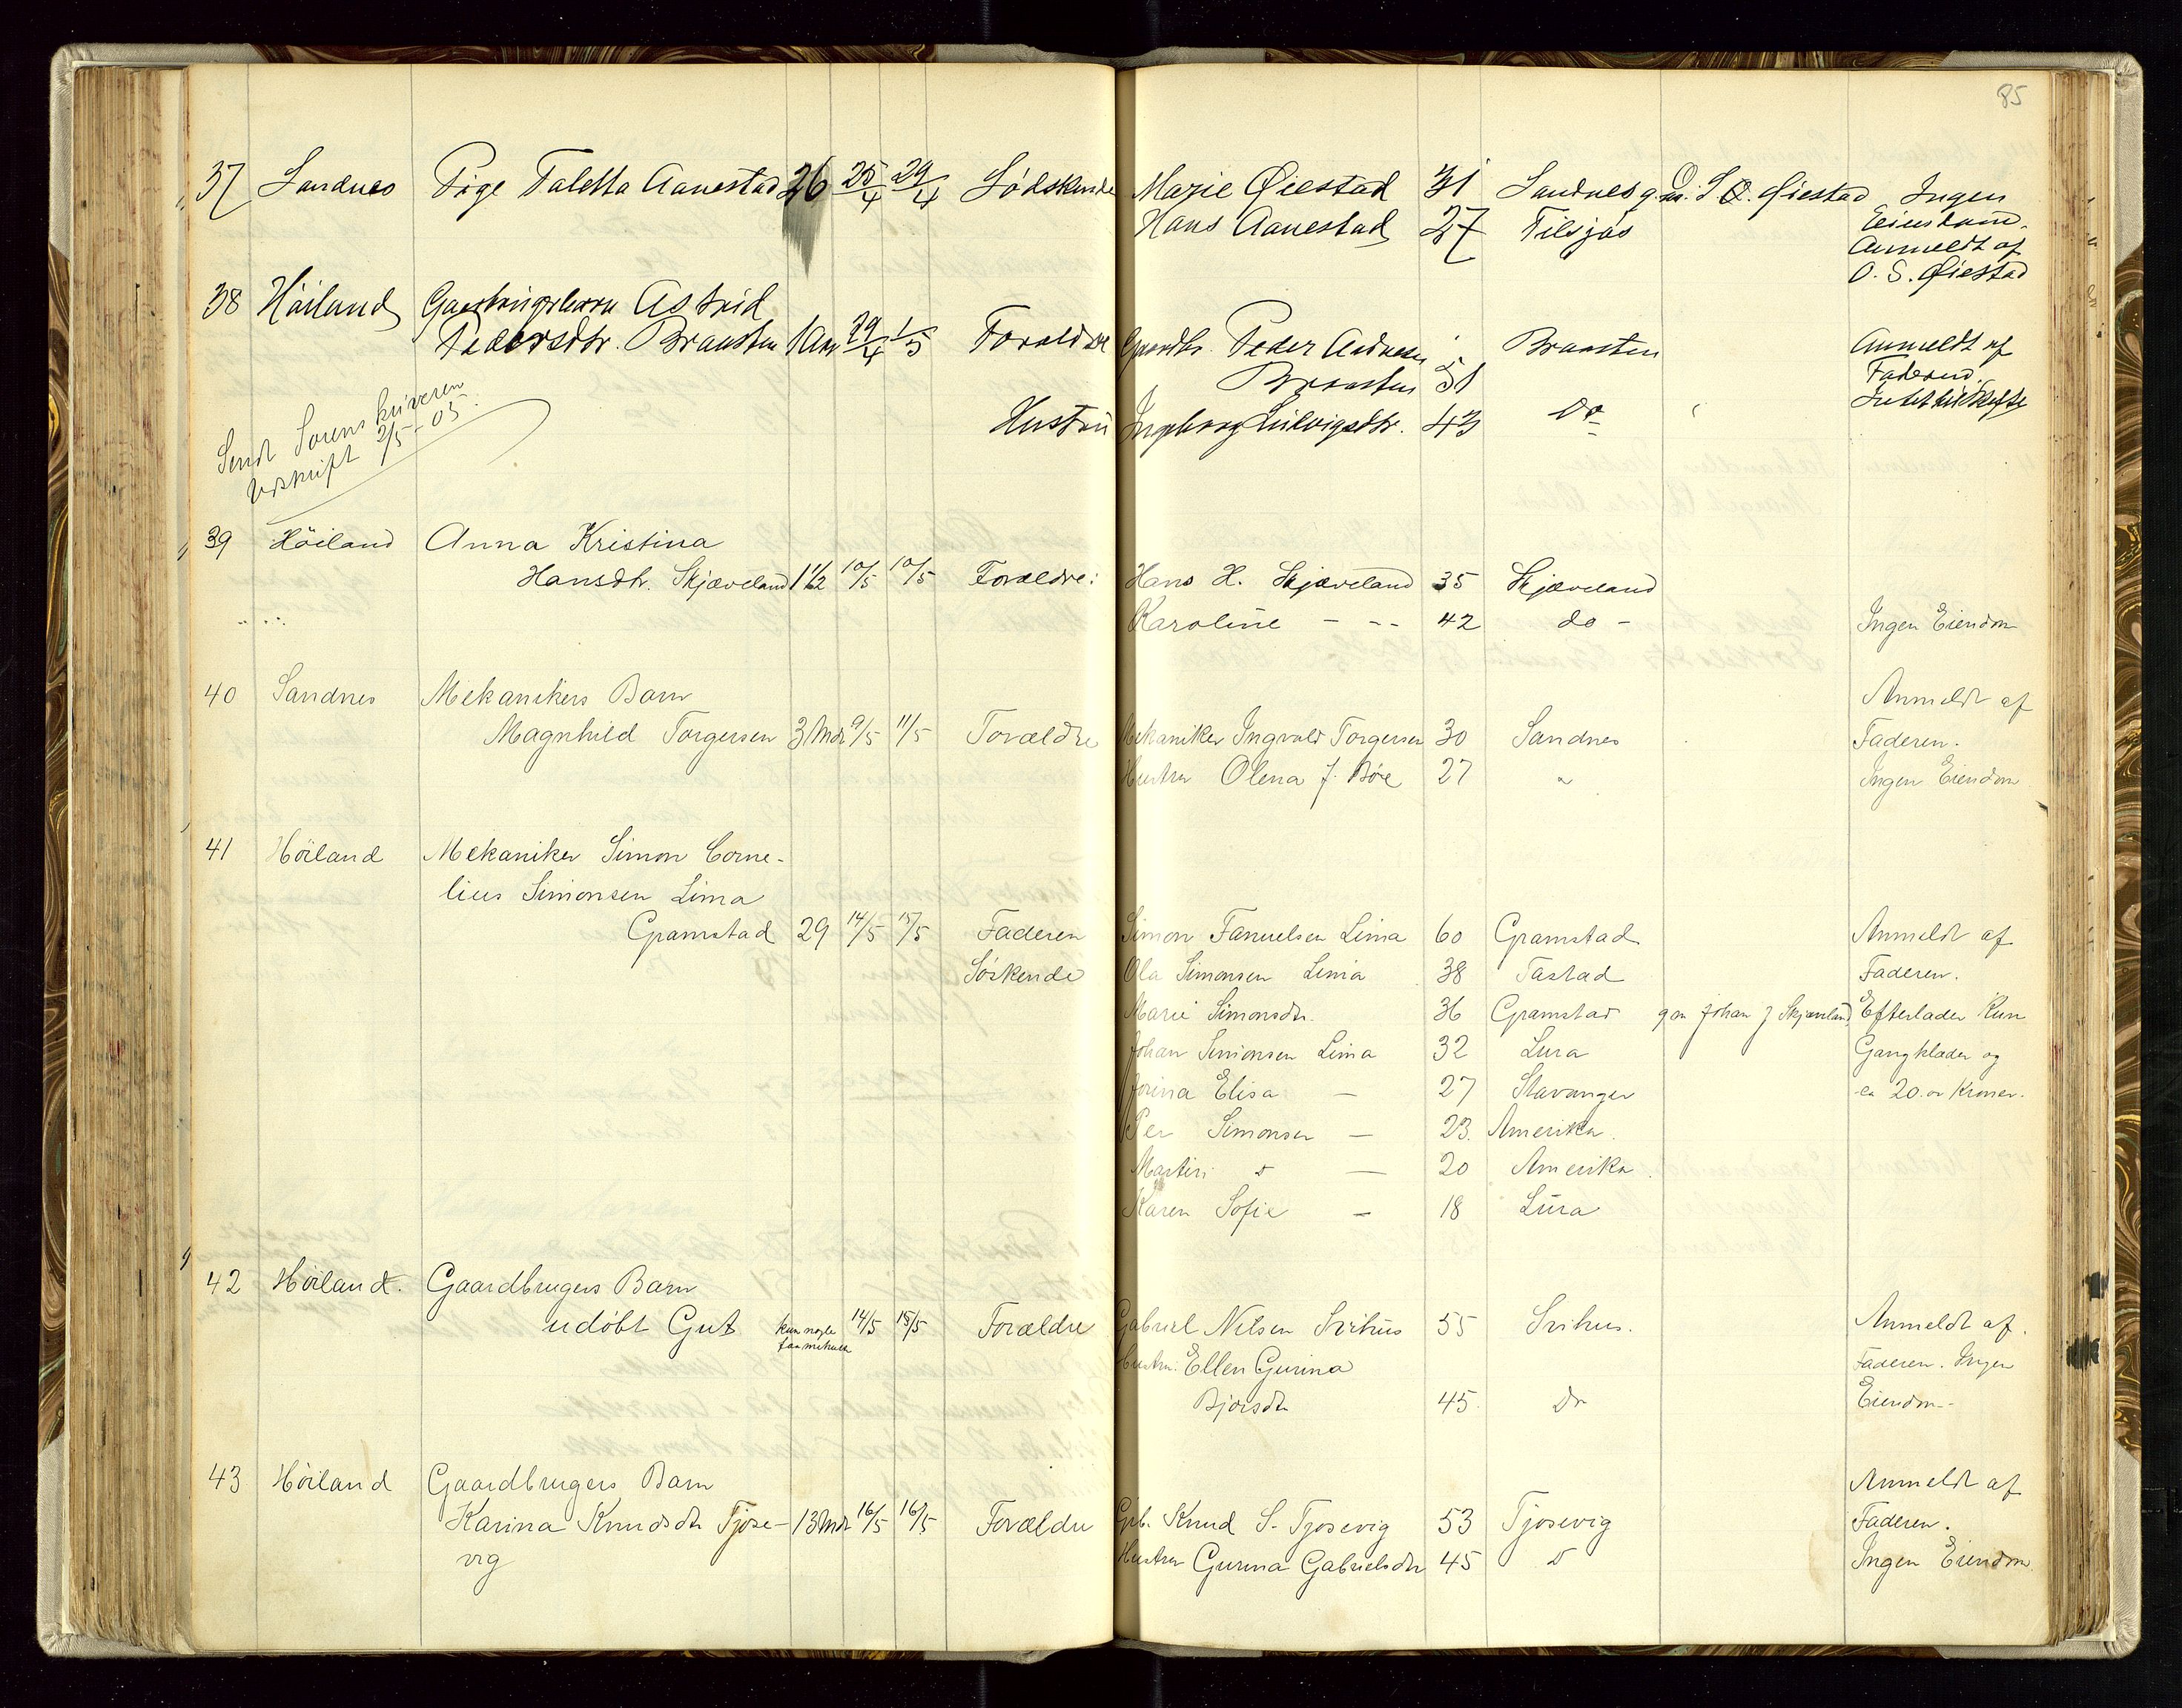 85
37 Sandnes Pige Taletta Aanestad 26 25/4 29/4 Sødskende Marie Øiestad 31 Sandnes g.m. S. O. Øiestad Ingen
Hans Aanestad 27 Tilsjøs Eiendom.
Anmeldt af
O. S. Øiestad
38 Höiland Astrid
Pedersdtr. Braasten 1 Aar 29/4 1/5 Forældre Gaardbr. Peder Andreas Braasten Anmeldt af
Braasten 51 Faderen.
Hustru Ingeborg Ludvigsdtr. 43 Do
Sendt Sorenskriveren
Udskrift 2/5-05.
39 Höiland Anna Kristina
Hansdtr. Skjæveland 1 1/2 10/5 10/5 Forældre: Hans H. Skjæveland 35 Skjæveland
Karoline - -- 42 do - Ingen Eiendom
40 Sandnes Mekanikers Barn Anmeldt af
Magnhild Torgersen 3 Mdr 9/5 11/5 Forældre Mekaniker Ingvald Torgersen 30 Sandnes Faderen.
Hustru Olena J. Bøe 27 " Ingen Eiendom
41 Höiland Mekaniker Simon Corne-
lius Simonsen Lima
Gramstad 29 14/5 15/5 Faderen Simon Fanuelsen Lima 60 Gramstad Anmeldt af
Söskende Ola Simonsen Lima 38 Tastad Faderen.
Marie Simonsdtr. 36 Gramstad gm Johan J Skjæveland, Efterlader kun
Johan Simonsen Lima 32 Lura Gangklæder og
Jorina Elisa — 27 Stavanger ca 20.00 Kroner.
Per Simonsen — 23. Amerika.
Martin — 20 Amerika.
Karen Sofie — 18 Lura
42 Höiland. Gaardbrugers Barn
udöbt Gut kun nogle faa minuter 14/5 15/5 Forældre Gabriel Nilsen Svihus 55 Svihus. Anmeldt af
Hustru: Ellen Gurina Faderen. Ingen
45 Do Eiendom-
43 Höiland Gaardbrugers Barn Anmeldt af
Karina Knudsdtr Tjøse- 13 Mdr 16/5 16/5 Forældre Gbr. Knud S. Tjosevig 53 Tjosevig Faderen.
vig Hustru Gurina Gabrielsdtr 45 D Ingen Eiendom